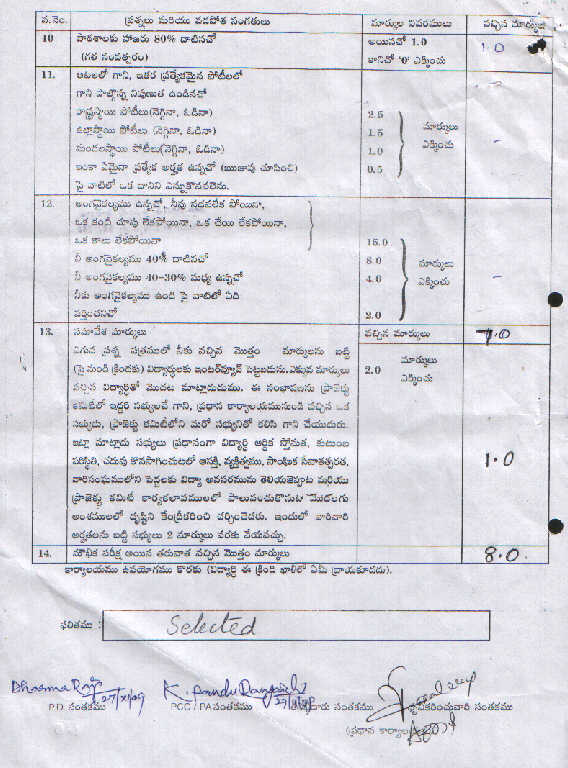 వ.నెం. ప్రశ్నలు మరియు వడపోత సంగతులు మార్కుల వివరములు వచ్చిన మార్కులు
10 పాఠశాలకు హాజరు 80% దాటినచో అయినచో 1.0 1.0
(గత సంవత్సరం) కానిచో '0' ఎక్కించు
11. ఆటలలో గాని, ఇతర ప్రత్యేకమైన పోటీలలో
గాని పాల్గొన్న నిపుణత ఉండినచో
రాష్ట్రస్థాయి పోటీలు(నెగ్గినా, ఓడినా) 2.5
జిల్లాస్థాయి పోటీలు (నెగ్గినా, ఓడినా) 1.5 మార్కులు
మండలస్థాయి పోటీలు(నెగ్గినా, ఓడినా) 1.0 ఎక్కించు
ఇంకా ఏమైనా ప్రత్యేక అర్హత ఉన్నచో (ఋజువు చూపించి) 0.5
పై వాటిలో ఒక దానిని ఎన్నుకొనవలెను.
12. అంగవైకల్యము ఉన్నచో, నీవు నడవలేక పోయినా,
ఒక కంటి చూపు లేకపోయినా, ఒక చేయి లేకపోయినా,
ఒక కాలు లేకపోయినా 15.0
నీ అంగవైకల్యము 40% దాటినచో 8.0 మార్కులు
నీ అంగవైకల్యము 40-30% మధ్య ఉన్నచో 4.0 ఎక్కించు
నీకు అంగవైకల్యము ఉండి పై వాటిలో ఏది
వర్తించనిచో 2.0
13. సమావేశ మార్కులు వచ్చిన మార్కులు 7.0
ఎగువ ప్రశ్న పత్రములో నీకు వచ్చిన మొత్తం మార్కులను బట్టి మార్కులు
(పై నుండి క్రిందకు) విద్యార్థులకు ఇంటర్వ్యూకై పెట్టబడును.ఎక్కువ మార్కులు 2.0 ఎక్కించు
వచ్చిన విద్యార్థితో మొదట మాట్లాడుదుము. ఈ సంభాషణను ప్రాజెక్టు
కమిటీలో ఇద్దరి సభ్యులచే గాని, ప్రధాన కార్యాలయమునుండి వచ్చిన ఒక
సభ్యుడు, ప్రాజెక్టు కమిటీలోని మరో సభ్యునితో కలిసి గాని చేయుదురు.
ఇట్లా మాట్లాడు సభ్యులు ప్రధానంగా విద్యార్థి ఆర్థిక స్తోమత, కుటుంబ
పరిస్థితి, చదువు కొనసాగించుటలో ఆసక్తి, వ్యక్తిత్వము, సాంఘిక సేవాతత్పరత, 1.0
వారిసంఘములోని పెద్దలకు విద్యా అవసరమును తెలియజెప్పుట మరియు
ప్రాజెక్టు కమిటీ కార్యకలాపములలో పాలుపంచుకొనుట మొదలగు
అంశములలో దృష్టిని కేంద్రీకరించి చర్చించెదరు. ఇందులో వారివారి
అర్హతలను బట్టి సభ్యులు 2 మార్కులు వరకు వేయవచ్చు.
14. మౌఖిక పరీక్ష అయిన తరువాత వచ్చిన మొత్తం మార్కులు 8.0.
కార్యాలయము ఉపయోగము కొరకు (విద్యార్థి ఈ క్రింది ఖాళీలో ఏమీ వ్రాయకూడదు).
ఫలితము : Selected
27/x/09
P.D. సంతకము PCC / PA సంతకము సంతకము సంతకము
(ప్రధాన